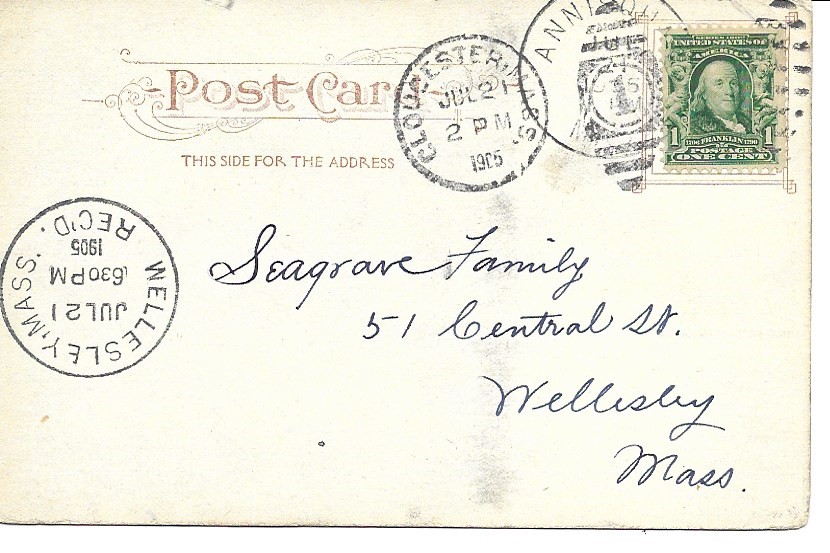 Post Card
THIS SIDE FOR THE ADDRESS
GLOUCESTER, MASS.
JUL 21
2 PM
1905
SERIES 1902
UNITED STATES OF
AMERICA
1 1706 FRANKLIN 1790 1
POSTAGE
ONE CENT
WELLESLEY, MASS.
JUL 21
630 PM
1905
REC'D.
Seagrave Family
51 Central St.
Wellesley
Mass.